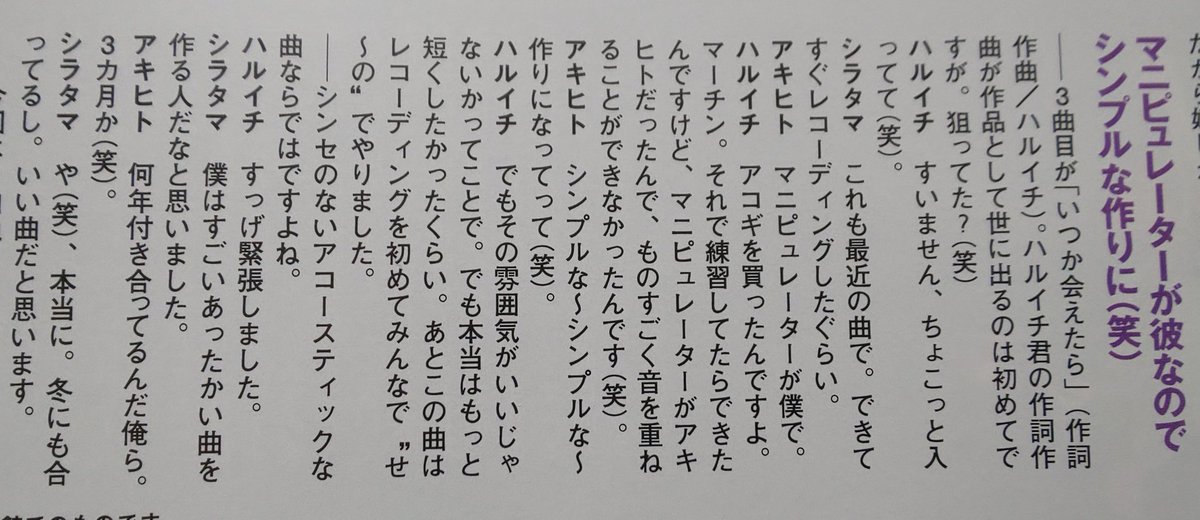 マニピュレーターが彼なので
シンプルな作りに(笑)
――3曲目が「いつか会えたら」(作詞
作曲/ハルイチ)。ハルイチ君の作詞作
曲が作品として世に出るのは初めてで
すが。狙ってた?(笑)
ハルイチ　すいません、ちょこっと入
ってて(笑)。
シラタマ　これも最近の曲で。できて
すぐレコーディングしたぐらい。
アキヒト　マニピュレーターが僕で。
ハルイチ　アコギを買ったんですよ。
マーチン。それで練習してたらできた
んですけど、マニピュレーターがアキ
ヒトだったんで、ものすごく音を重ね
ることができなかったんです(笑)。
アキヒト　シンプルな〜シンプルな〜
作りになってって(笑)。
ハルイチ　でもその雰囲気がいいじゃ
ないかってことで。でも本当はもっと
短くしたかったくらい。あとこの曲は
レコーディングを初めてみんなで〝せ
〜の〟でやりました。
――シンセのないアコースティックな
曲ならではですよね。
ハルイチ　すっげ緊張しました。
シラタマ　僕はすごいあったかい曲を
作る人だなと思いました。
アキヒト　何年付き合ってるんだ俺ら。
3カ月か(笑)。
シラタマ　や(笑)、本当に。冬にも合
ってるし。いい曲だと思います。